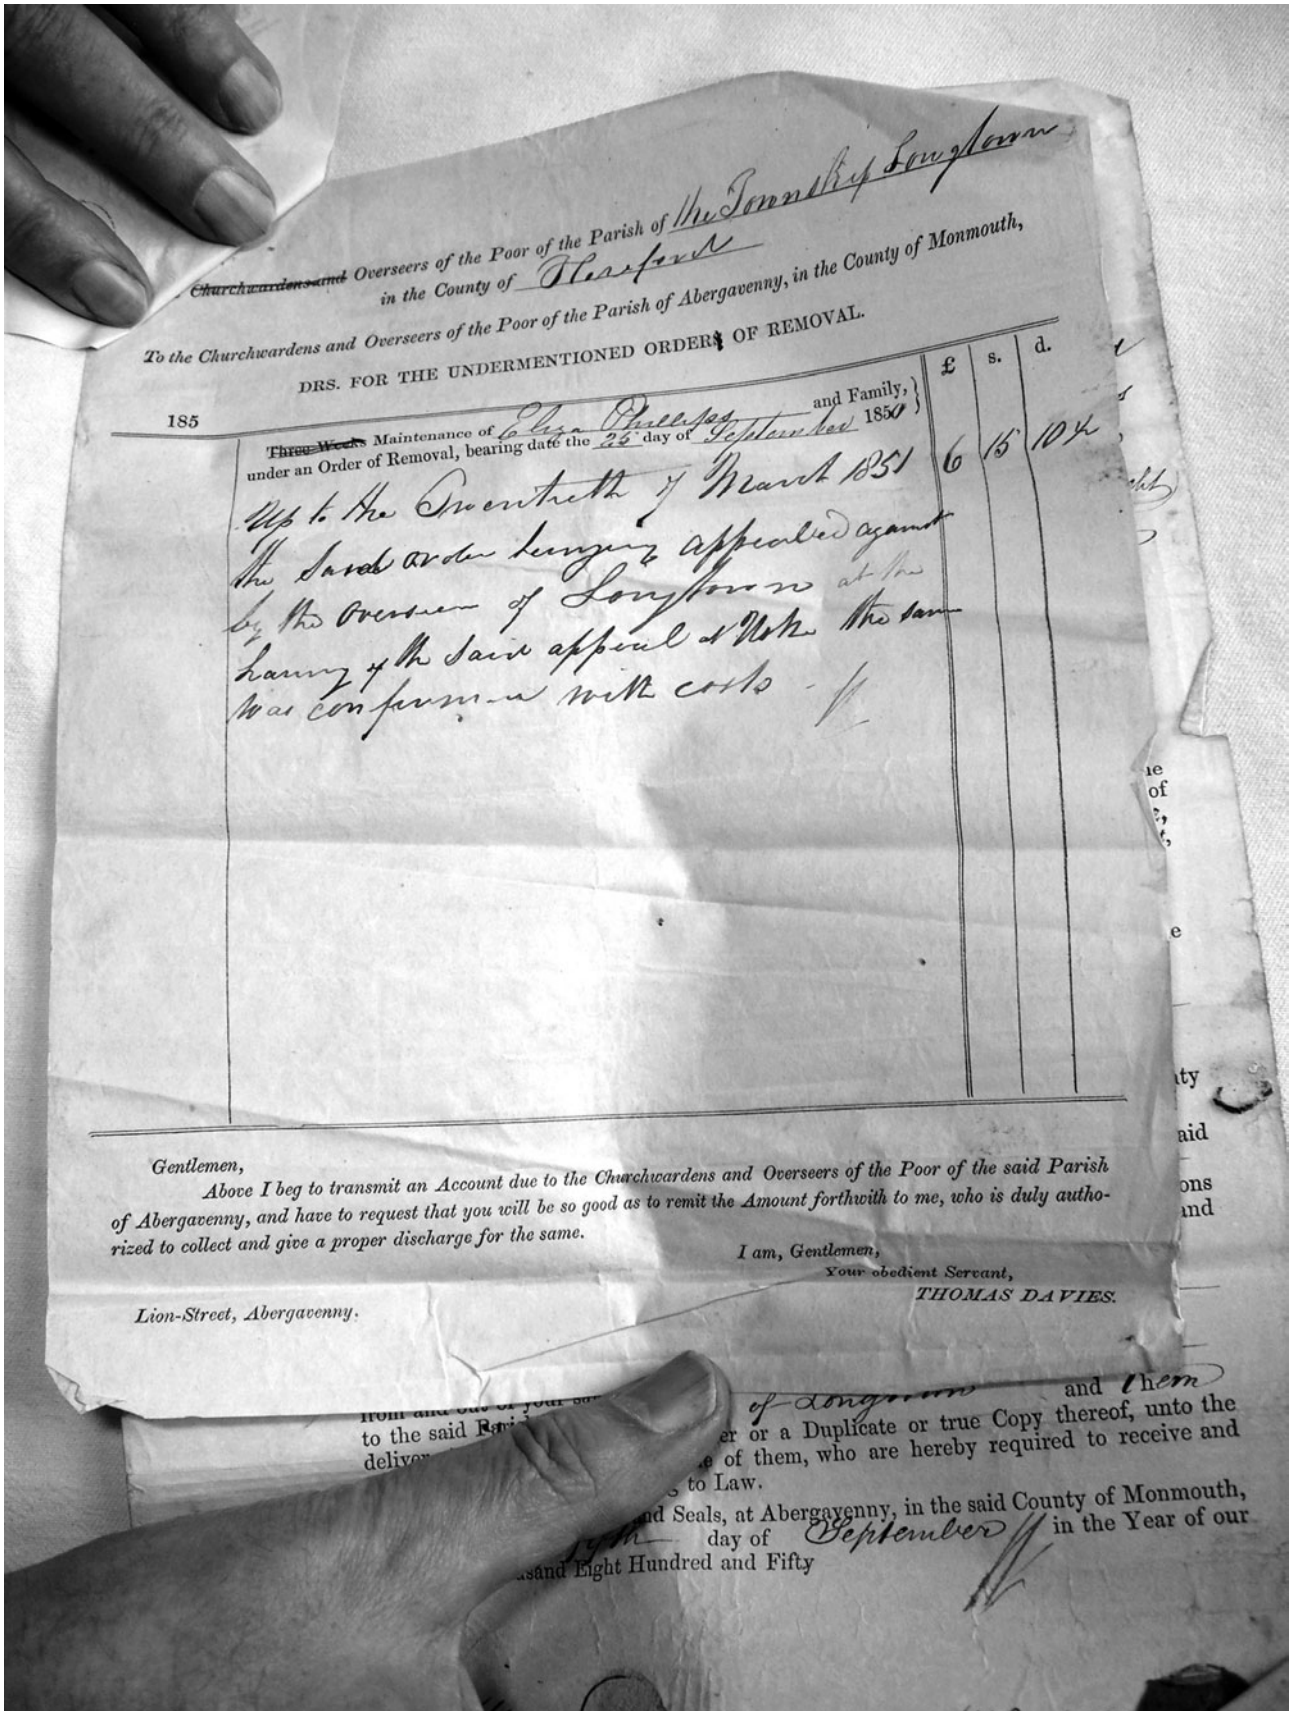 Churchwardens and Overseers of the Poor of the Parish of the Township Longtown
in the County of Hereford
To the Churchwardens and Overseers of the Poor of the Parish of Abergavenny, in the County of Monmouth,
DRS. FOR THE UNDERMENTIONED ORDERS OF REMOVAL.
185 £ s. d.
Three Weeks Maintenance of Eliza Phillips and Family,
under an Order of Removal, bearing date the 25 day of September 1850
Up to the Twentieth of March 1851 6 15 10
the said order being appealed against
by the overseers of Longtown at the
hearing of the said appeal at Usk the same
was confirmed with costs
Gentlemen,
Above I beg to transmit an Account due to the Churchwardens and Overseers of the Poor of the said Parish
of Abergavenny, and have to request that you will be so good as to remit the Amount forthwith to me, who is duly autho-
rized to collect and give a proper discharge for the same.
I am, Gentlemen,
Your obedient Servant,
THOMAS DAVIES.
Lion-Street, Abergavenny.
from and out of your
of Longtown and them
to the said Parish
er or a Duplicate or true Copy thereof, unto the
deliver
of them, who are hereby required to receive and
to Law.
and Seals, at Abergavenny, in the said County of Monmouth,
day of September in the Year of our
Eight Hundred and Fifty
ne
of
e
ty
aid
ons
and